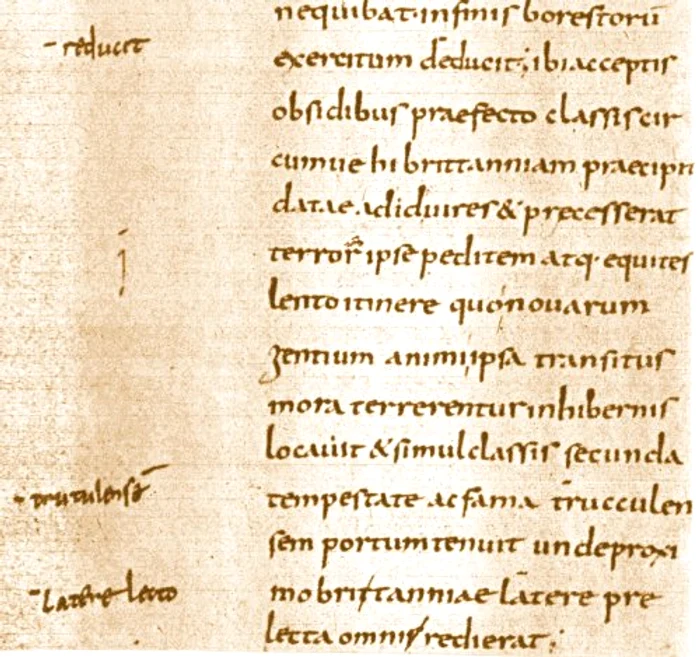 nequibat·infinis borestorū
- reducit
exercitum deducit; ibi acceptis
obsidibus praefecto classis cir
cumuehi brittanniam praecipit
datae adiduires & precesserat
terror ipse peditem atq· equites
lento itinere quo nouarum
gentium animi ipsa transitus
mora terrerentur inhibernis
locauit & simul classis secunda
- trutulensē
tempestate ac fama trucculen
sem portum tenuit unde proxi
- latere lecto
mo brittanniae latere pre
lecta omnis redierat;